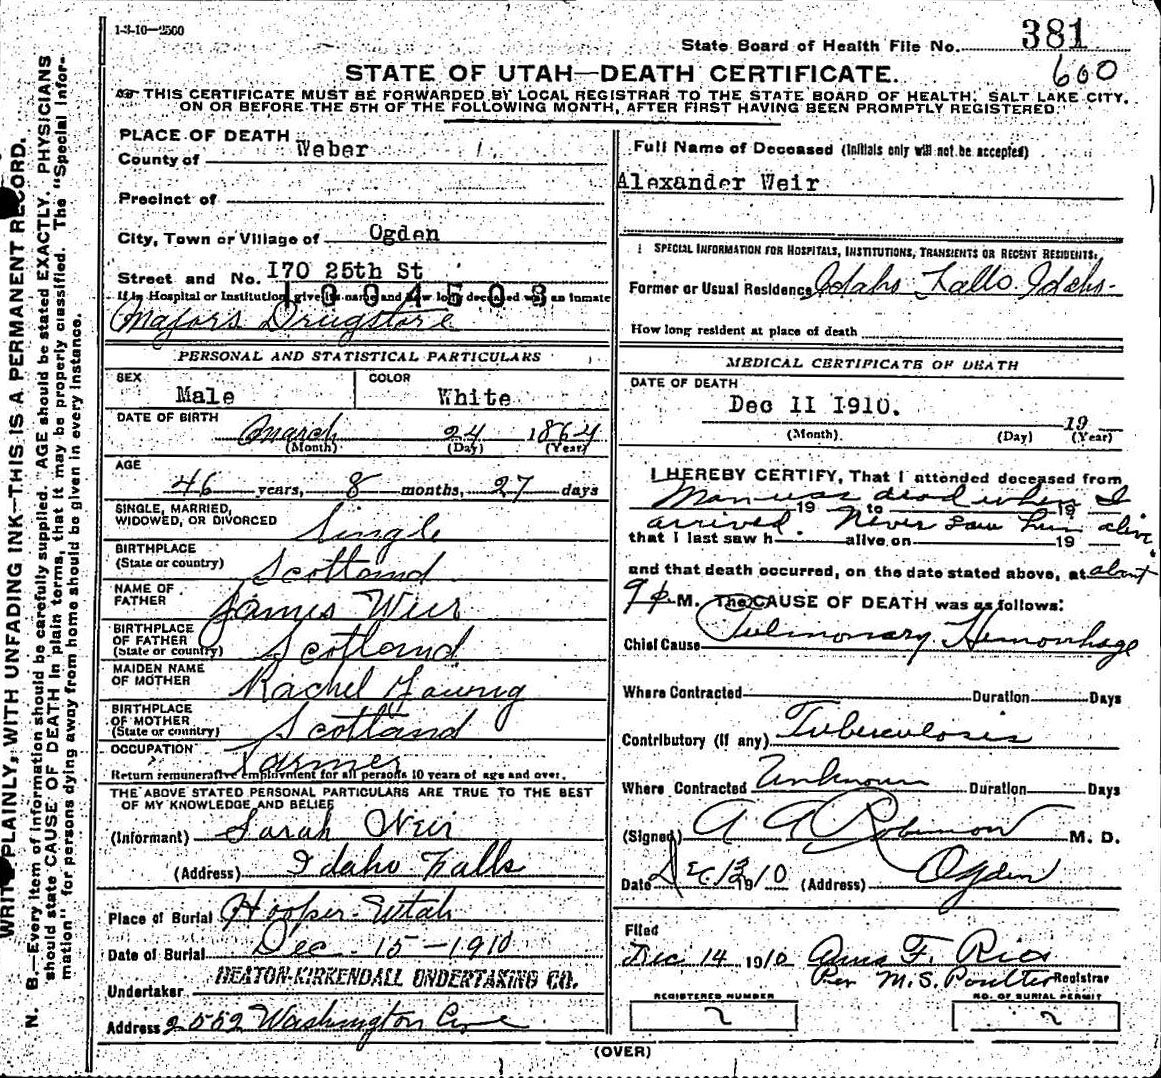 1-3-10—2500
State Board of Health File No. 381
600
STATE OF UTAH—DEATH CERTIFICATE.
THIS CERTIFICATE MUST BE FORWARDED BY LOCAL REGISTRAR TO THE STATE BOARD OF HEALTH, SALT LAKE CITY,
ON OR BEFORE THE 5TH OF THE FOLLOWING MONTH, AFTER FIRST HAVING BEEN PROMPTLY REGISTERED.
PLACE OF DEATH
County of Weber
Precinct of
City, Town or Village of Ogden
Street and No. I70 25th St
1004508
If in Hospital or Institution, give its name and how long deceased was an inmate
Majors Drugstore
PERSONAL AND STATISTICAL PARTICULARS
SEX Male
COLOR White
DATE OF BIRTH March 24 1864
(Month) (Day) (Year)
AGE
46 years, 8 months, 27 days
SINGLE, MARRIED,
WIDOWED, OR DIVORCED Single
BIRTHPLACE
(State or country) Scotland
NAME OF
FATHER James Weir
BIRTHPLACE
OF FATHER
(State or country) Scotland
MAIDEN NAME
OF MOTHER Rachel Young
BIRTHPLACE
OF MOTHER
(State or country) Scotland
OCCUPATION Farmer
Return remunerative employment for all persons 10 years of age and over.
THE ABOVE STATED PERSONAL PARTICULARS ARE TRUE TO THE BEST
OF MY KNOWLEDGE AND BELIEF
(Informant) Sarah Weir
(Address) Idaho Falls
Place of Burial Hooper-Utah
Date of Burial Dec - 15 - 1910
Undertaker HEATON-KIRKENDALL UNDERTAKING CO.
Address 2552 Washington Ave
Full Name of Deceased (Initials only will not be accepted)
Alexander Weir
SPECIAL INFORMATION FOR HOSPITALS, INSTITUTIONS, TRANSIENTS OR RECENT RESIDENTS.
Former or Usual Residence Idaho Falls. Idaho-
How long resident at place of death
MEDICAL CERTIFICATE OF DEATH
DATE OF DEATH
Dec II I9I0.
19
(Month) (Day) (Year)
I HEREBY CERTIFY, That I attended deceased from
Man was dead when I
19 to 19
arrived Never saw him alive.
that I last saw h alive on 19
and that death occurred, on the date stated above, at about
9 p. M. The CAUSE OF DEATH was as follows:
Chief Cause Pulmonary Hemorrhage
Where Contracted Duration Days
Contributory (if any) Tuberculosis
Where Contracted Unknown Duration Days
(Signed) A A Robinson M. D.
Date Dec 13 1910 (Address) Ogden
Filed
Dec 14 1910 F. Rice
Per M.S. Poulter Registrar
REGISTERED NUMBER
2
NO. OF BURIAL PERMIT
2
(OVER)
WRITE PLAINLY, WITH UNFADING INK—THIS IS A PERMANENT RECORD.
N. B.—Every item of information should be carefully supplied. AGE should be stated EXACTLY. PHYSICIANS
should state CAUSE OF DEATH in plain terms, that it may be properly classified. The "Special Infor-
mation" for persons dying away from home should be given in every instance.